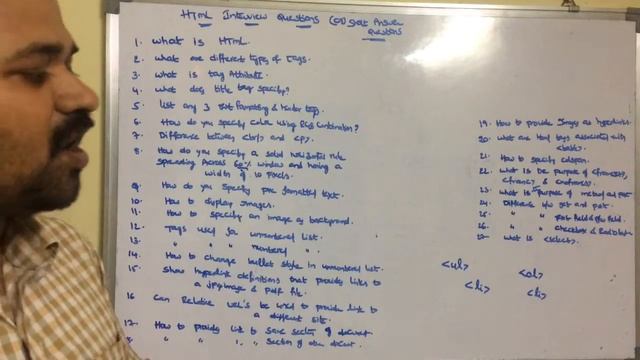 HTML Interview Questions (OR) Short Answer
Questions
1. What is HTML.
2. What are different types of Tags.
3. What is tag Attribute.
4. What does title tag specify?
5. List any 3 text formatting & Header tags
6. How do you specify color using RGB Combination?
7. Difference between <br/> and <p>.
8. How do you specify a solid horizontal rule
spreading Across 60% window and having a
width of 10 Pixels.
9. How do you specify pre formatted text.
10. How to display Images.
11. How to specify an image as background.
12. Tags used for unnumbered list.
13. " " " numbered ".
14. How to change bullet style in unnumbered list.
15. Show hyperlink definitions that provides links to
a jpg image & pdf file.
16 Can Relative URL's be used to provide link to
a different site.
17. How to provide link to same section of document
" " " " section of other document.
19. How to provide Images as hyperlinks.
20. What are Html tags associated with
<table>.
21. How to specify colspan.
22. What is the purpose of <frameset>,
<frame> & <noframes>.
23. What is purpose of method and post.
24. Difference b/w get and post.
25. " " text field &
26. " " checkbox & Radio button
27. What is <select>.
<ul> <ol>
<li> <li>